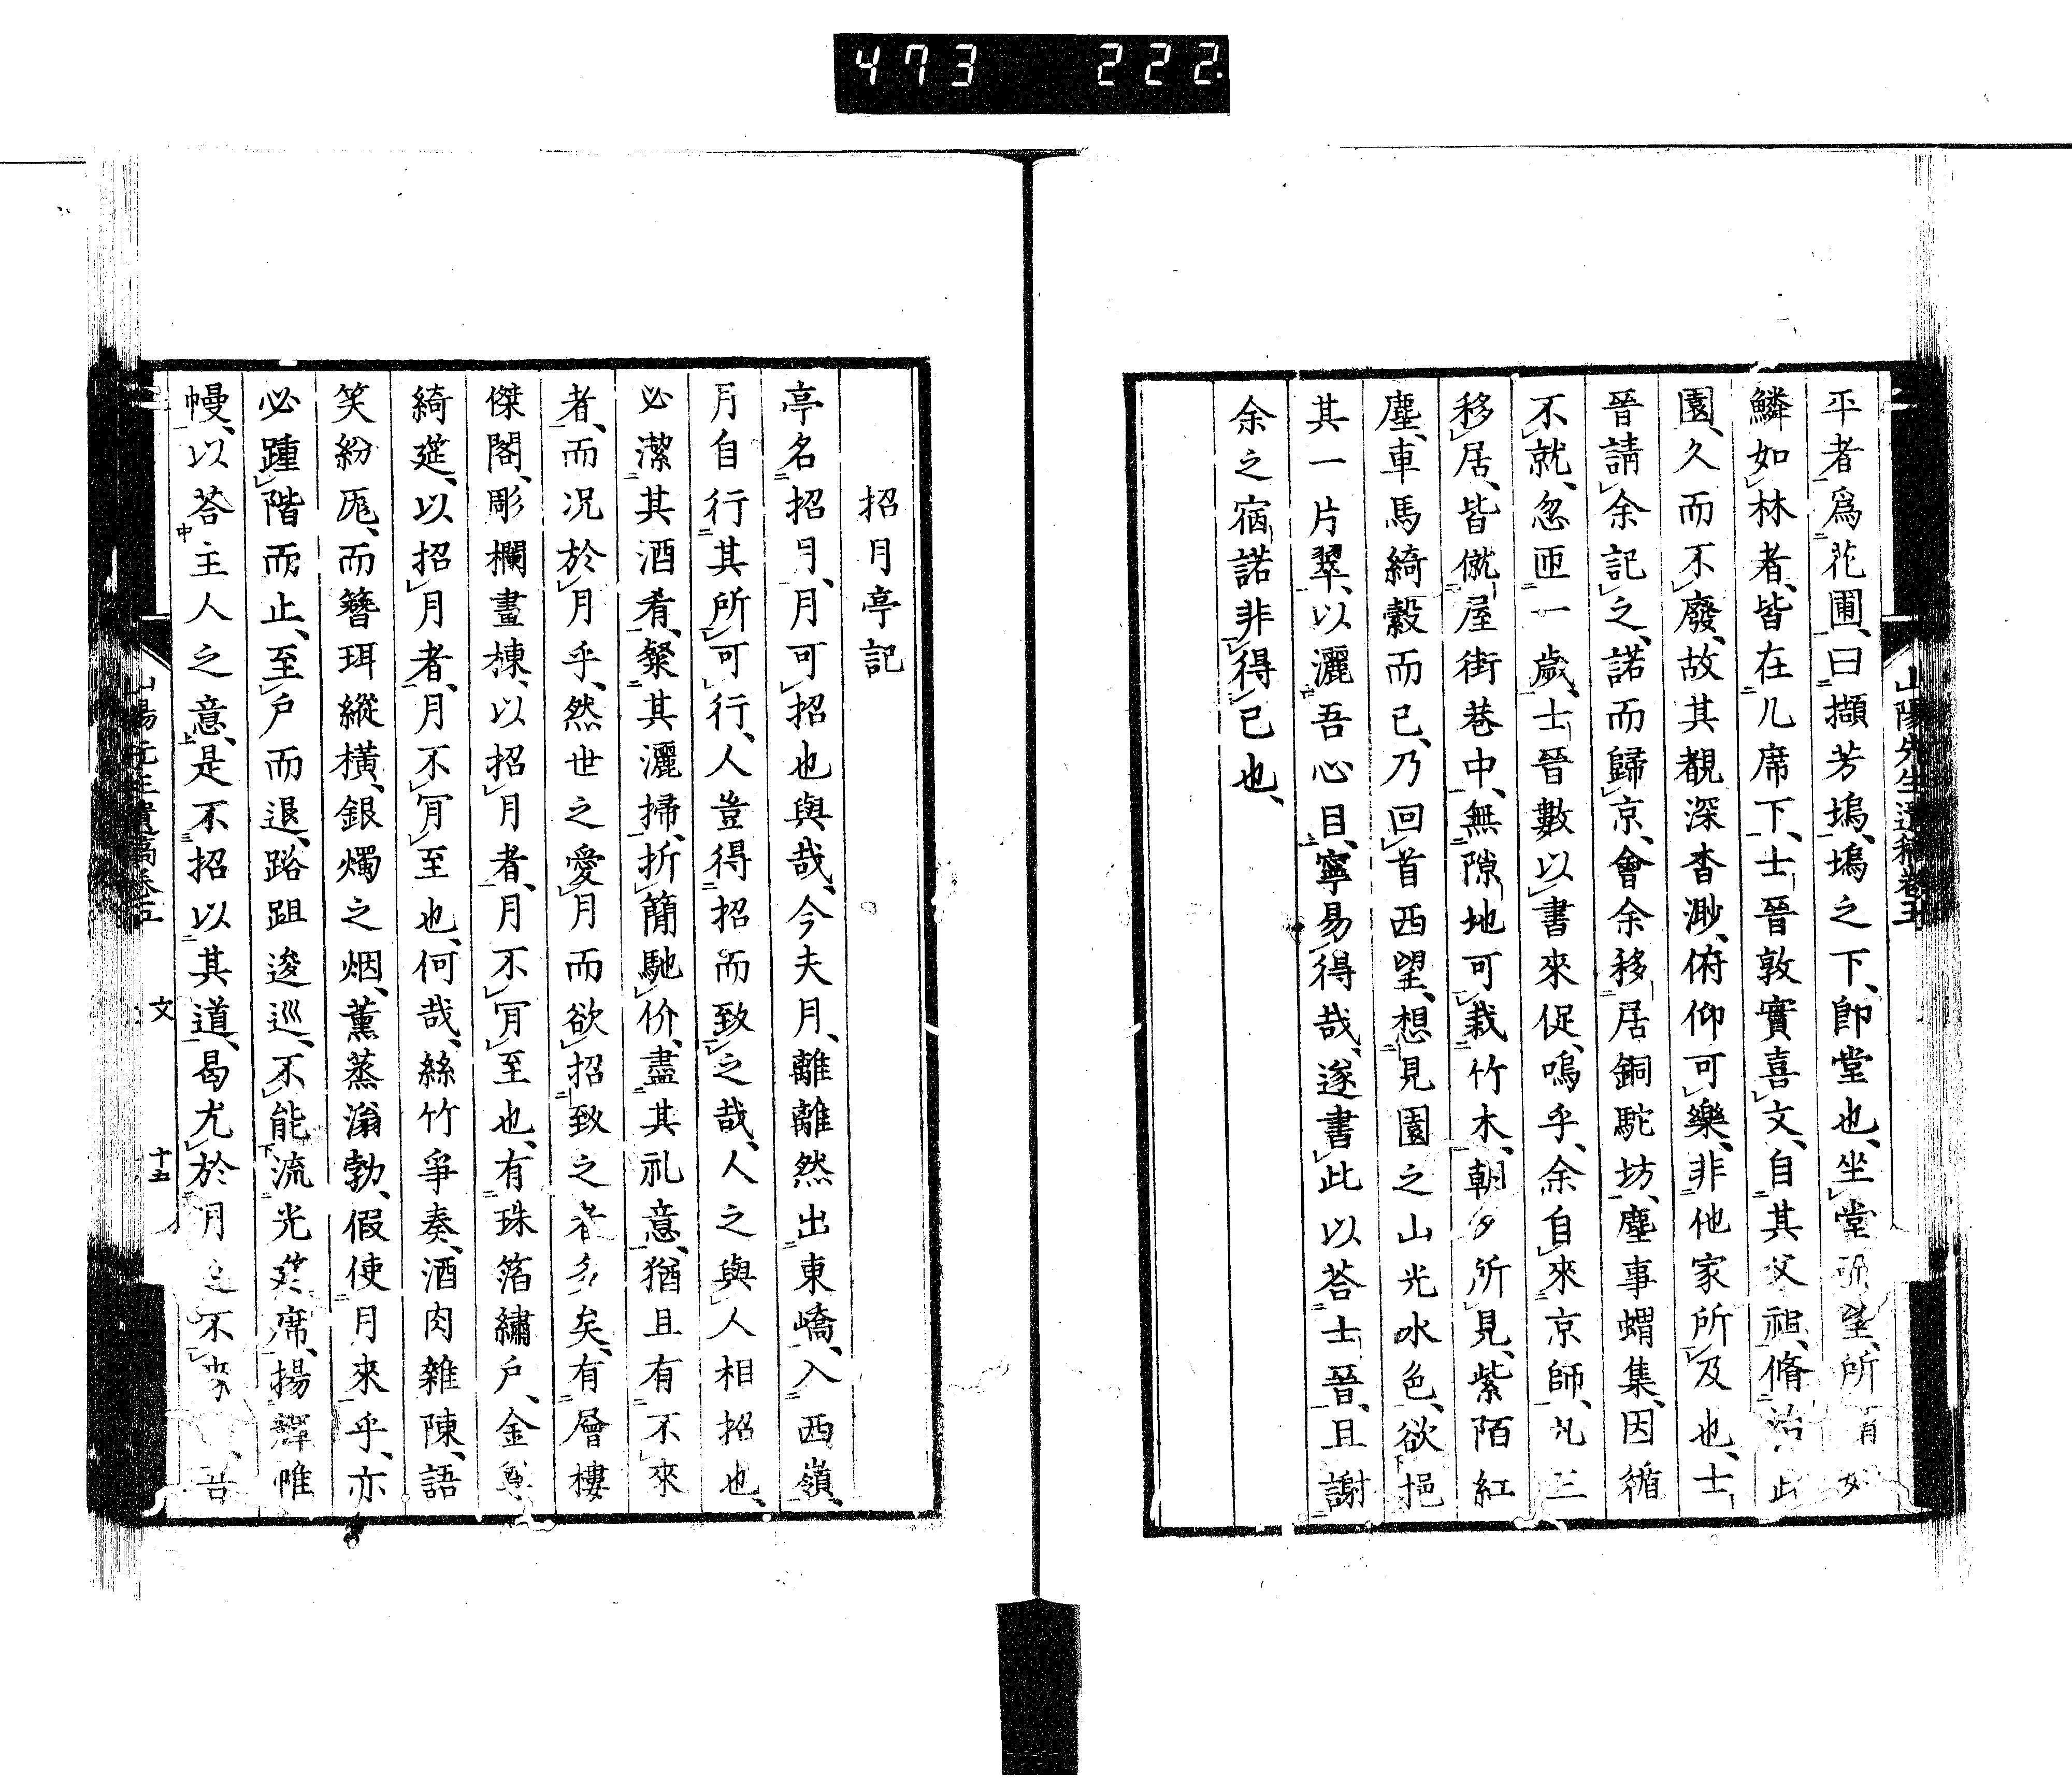 473 222
山陽先生遺稿卷五
平者、爲花圃、曰擷芳塢、塢之下、卽堂也、坐堂 望、所
鱗如林者、皆在几席下、士晉敦實喜文、自其父祖、脩治此
園、久而不廢、故其觀深杳渺、俯仰可樂、非他家所及也、士
晉請余記之、諾而歸京、會余移居銅駝坊、塵事蝟集、因循
不就、忽匝一歲、士晉數以書來促、嗚乎、余自來京師、凡三
移居、皆僦屋街巷中、無隙地可栽竹木、朝夕所見、紫陌紅
塵、車馬綺縠而已、乃回首西望、想見園之山光水色、欲挹
其一片翠、以灑吾心目、寧易得哉、遂書此以荅士晉、且謝
余之宿諾非得已也、
招月亭記
亭名招月、月可招也與哉、今夫月、離離然出東嶠、入西嶺、
月自行其所可行、人豈得招而致之哉、人之與人相招也、
必潔其酒肴、粲其灑掃、折簡馳价、盡其礼意、猶且有不來
者、而況於月乎、然世之愛月而欲招致之者多矣、有層樓
傑閣、彫欄畫棟、以招月者、月不肎至也、有珠箔繡戶、金
綺筵、以招月者、月不肎至也、何哉、絲竹爭奏、酒肉雜陳、語
笑紛厖、而簪珥縱橫、銀燭之烟、薰蒸滃勃、假使月來乎、亦
必踵階而止、至戶而退、踌跙逡巡、不能流光筵席、揚輝帷
幔、以荅主人之意、是不招以其道、曷尤於月之不來
山陽先生遺稿卷五 文 十五